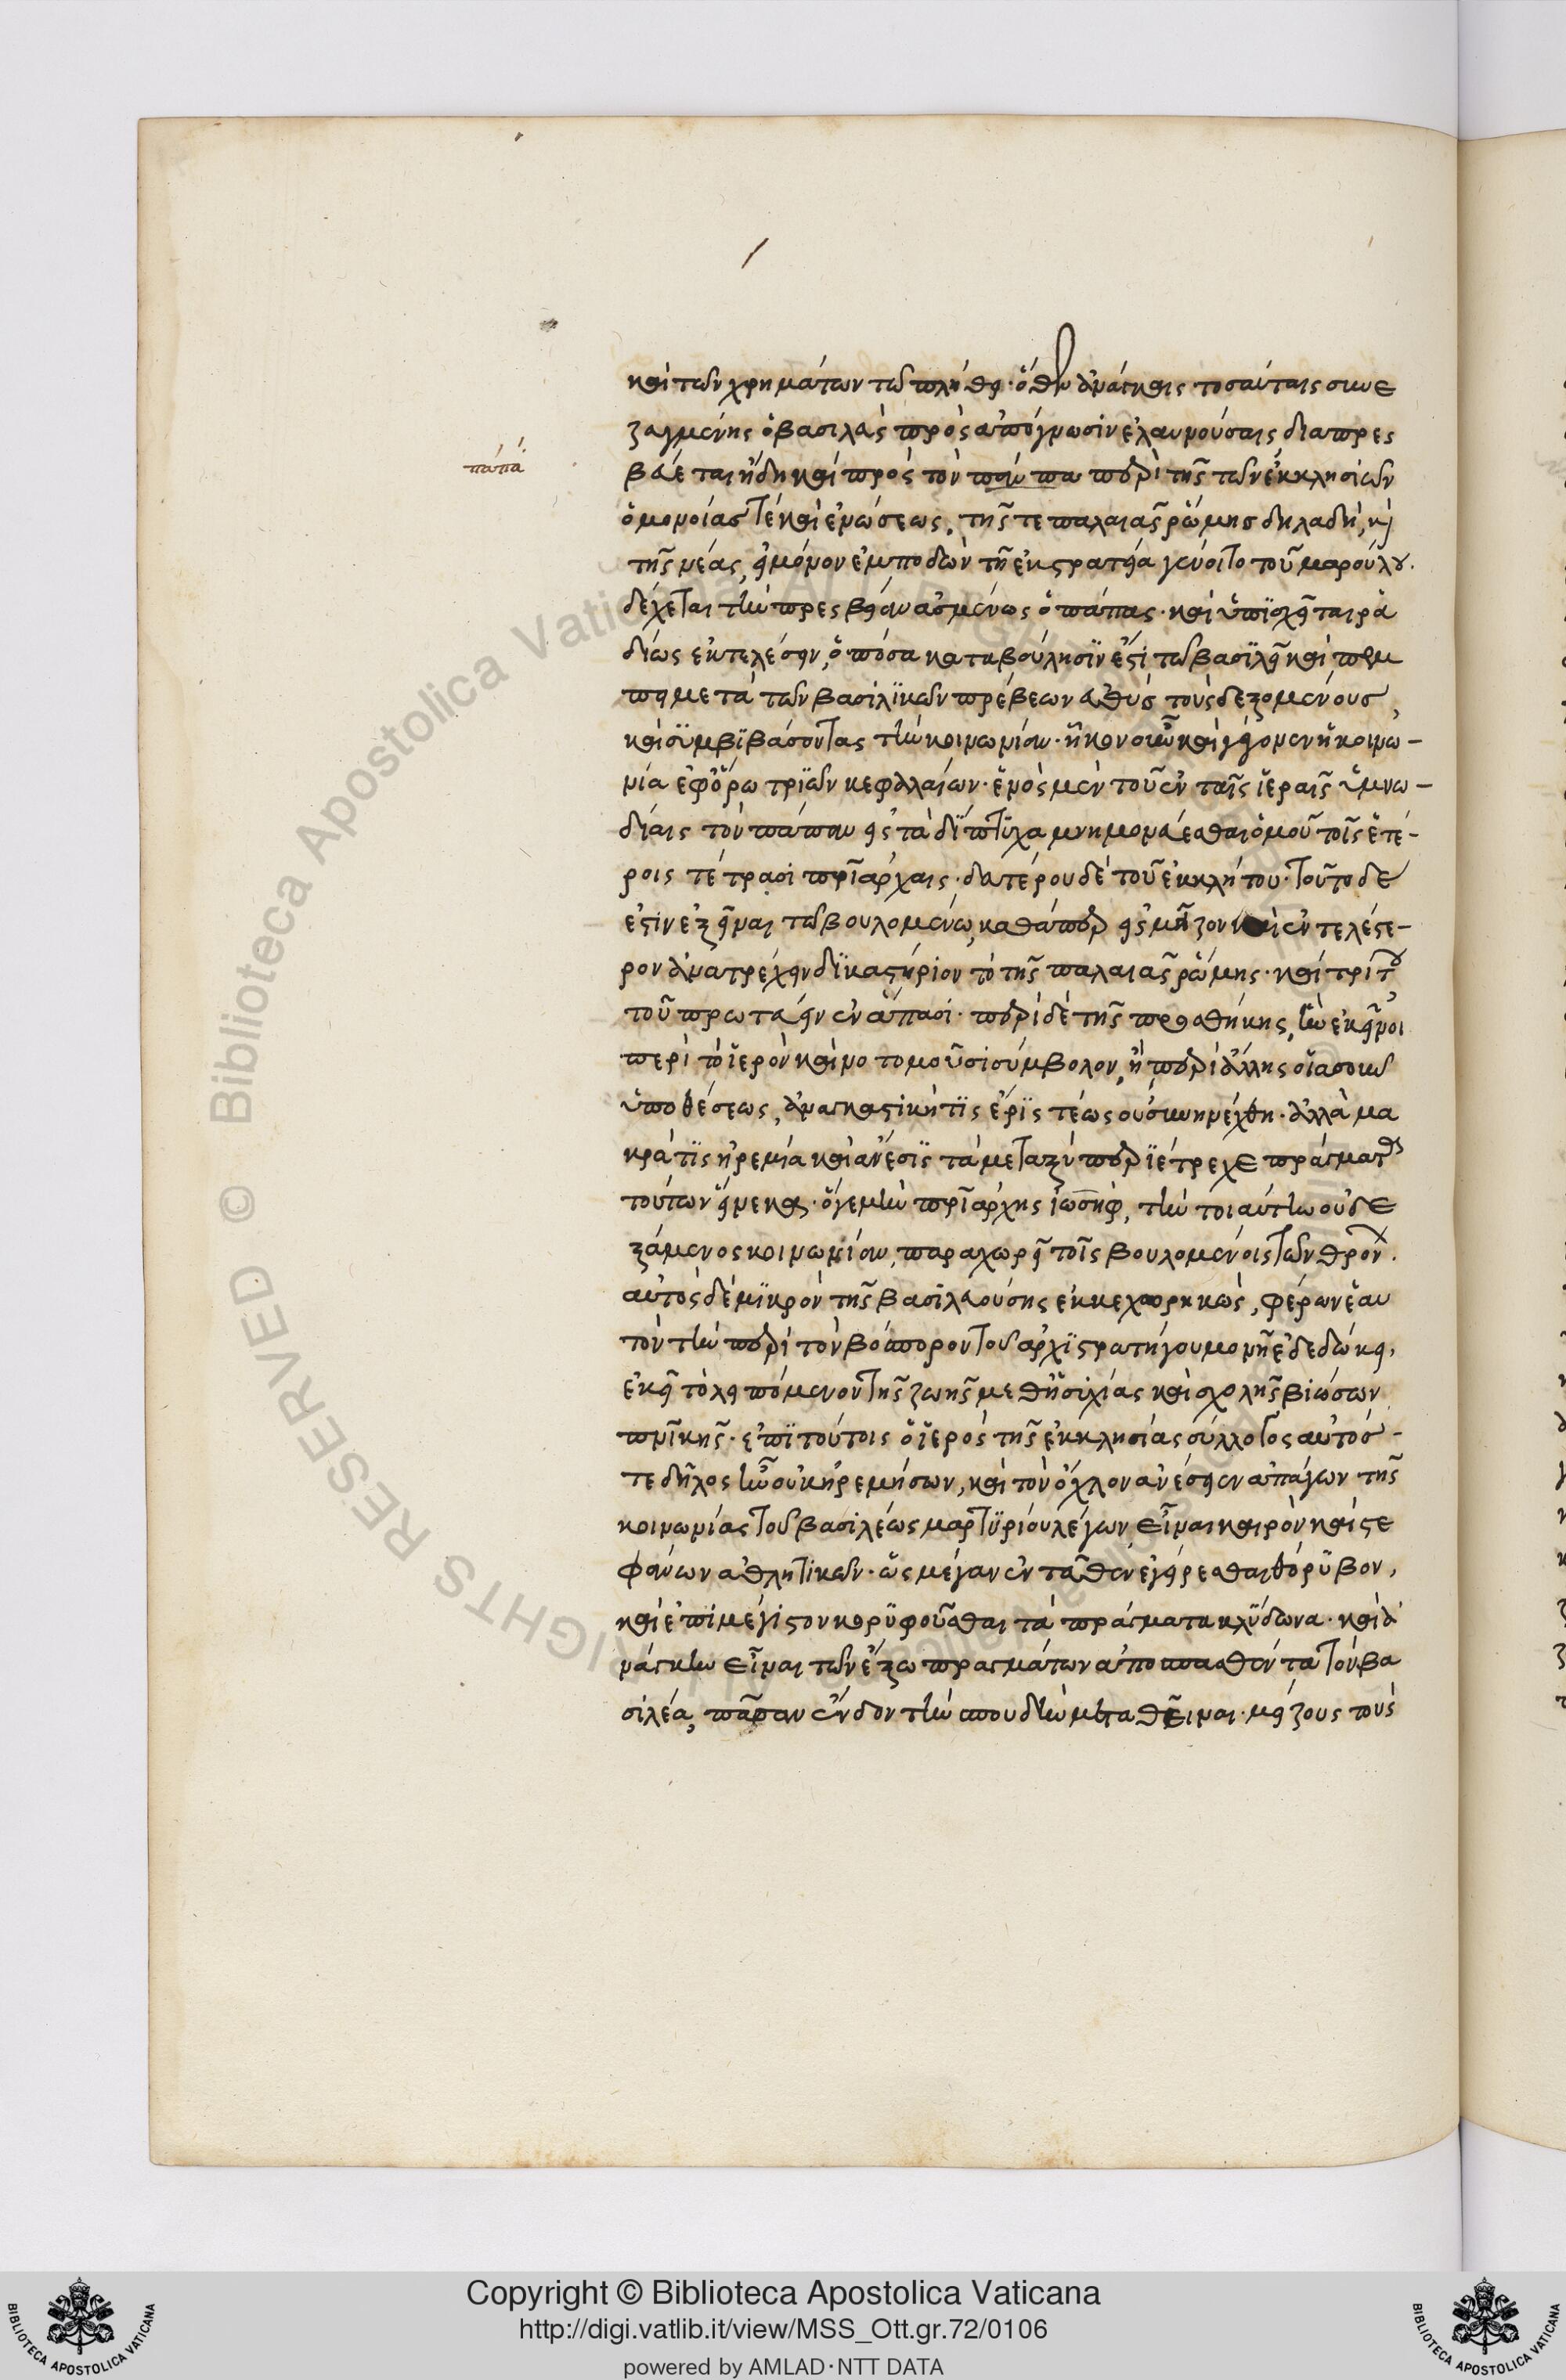 καὶ τῶν χρημάτων τῶ πλήθει· ὅθεν ἀνάγκαις τοσαύταις συνε
ζαγμένης ὁ βασιλεὺς πρὸς ἀπόγνωσιν ἐλαυνούσαις διαπρεσ
βεύεται ἤδη καὶ πρὸς τὸν πάπα περὶ τῆς τῶν ἐκκλησιῶν
πάπα
ὁμονοίας τὲ καὶ ἑνώσεως, τῆς τε παλαιᾶς ῥώμης δηλαδὴ, κὶ
τῆς νέας, εἰ μόνον ἐμποδὼν τῆ ἐκστρατεία γένοιτο τοῦ καρούλου.
δέχεται τὴν πρεσβείαν ἀσμένως ὁ πάπας· καὶ ὑπισχνεῖται ῥα
δίως ἐκτελέσειν, ὁπόσα κατα βούλησίν ἐστι τῶ βασιλεῖ καὶ πεμ
πει μετὰ τῶν βασιλικῶν πρέβεων εὐθὺς τοὺς δεξομένους,
καὶ συμβιβάσοντας τὴν κοινωνίαν· ἧκον οὖν καὶ γέγονεν ἡ κοινω-
νία ἐφ' ὅρω τριῶν κεφαλαίων· ἑνὸς μὲν τοῦ ἐν ταῖς ἱεραῖς ὑμνω-
δίαις τὸν πάπαν εἰς τὰ δίπτυχα μνημονεύεσθαι ὁμοῦ τοῖς ἑτέ-
ροις τέτρασι πριάρχαις· δευτέρου δὲ τοῦ ἐκκλήτου· τοῦτο δὲ
ἐστὶν ἐξεῖναι τῶ βουλομένω, καθάπερ εἰς μεῖζον καὶ ἐντελέστε-
ρον ἀνατρέχειν δικαστήριον τὸ τῆς παλαιᾶς ῥώμης· καὶ τρίτου
τοῦ πρωτεύειν ἐν ἅπασι· περὶ δὲ τῆς προσθήκης, ἣν ἐκεῖνοι
περὶ τὸ ἱερὸν καινοτομοῦσι σύμβολον, ἢ περὶ ἄλλης οἵας οὖν
ὑποθέσεως, ἀναγκαστικήτις ἔρις τέως οὐ συνηνέχθη· ἀλλὰ μα
κρά τις ἠρεμία καὶ ἄνεσις τὰ μεταξὺ περιέτρεχε πράγματα
τούτων εἵνεκα· ὅγε μὴν πριάρχης ἰωσὴφ, τὴν τοιαύτην οὐ δε
ξάμενος κοινωνίαν, παραχωρεῖ τοῖς βουλομένοις τῶν θρόνων.
αὐτὸς δὲ μικρὸν τῆς βασιλευούσης ἐκκεχωρηκὼς, φέρων ἑαυ
τὸν τῆ περὶ τὸν βόσπορον τοῦ ἀρχιστρατήγου μονῆ ἐδεδώκει,
ἐκεῖ τὸ λειπόμενον τῆς ζωῆς μεθ' ἡσυχίας καὶ σχολῆς βιώσων
πνικῆς· ἐπὶ τούτοις ὁ ἱερὸς τῆς ἐκκλησίας σύλλογος αὐτός-
τε δῆλος ἦν οὐκ ἠρεμήσων, καὶ τὸν ὄχλον ἀνέσειεν ἀπάγων τῆς
κοινωνίας τοῦ βασιλέως μαρτυρίου λέγων εἶναι καιρὸν καὶ στε
φάνων ἀθλητικῶν· ὡς μέγαν ἐντεῦθεν ἐγείρεσθαι θόρυβον,
καὶ ἐπὶ μέγιστον κορυφοῦσθαι τὰ πράγματα κλύδωνα· καὶ ἀ
νάγκην εἶναι τῶν ἔξω πραγμάτων ἀποσπασθέντα τὸν βα
σιλέα, πᾶσαν ἔνδον τὴν σπουδὴν μεταθεῖναι· μείζους τοὺς
Copyright © Biblioteca Apostolica Vaticana
http://digi.vatlib.it/view/MSS_Ott.gr.72/0106
powered by AMLAD·NTT DATA